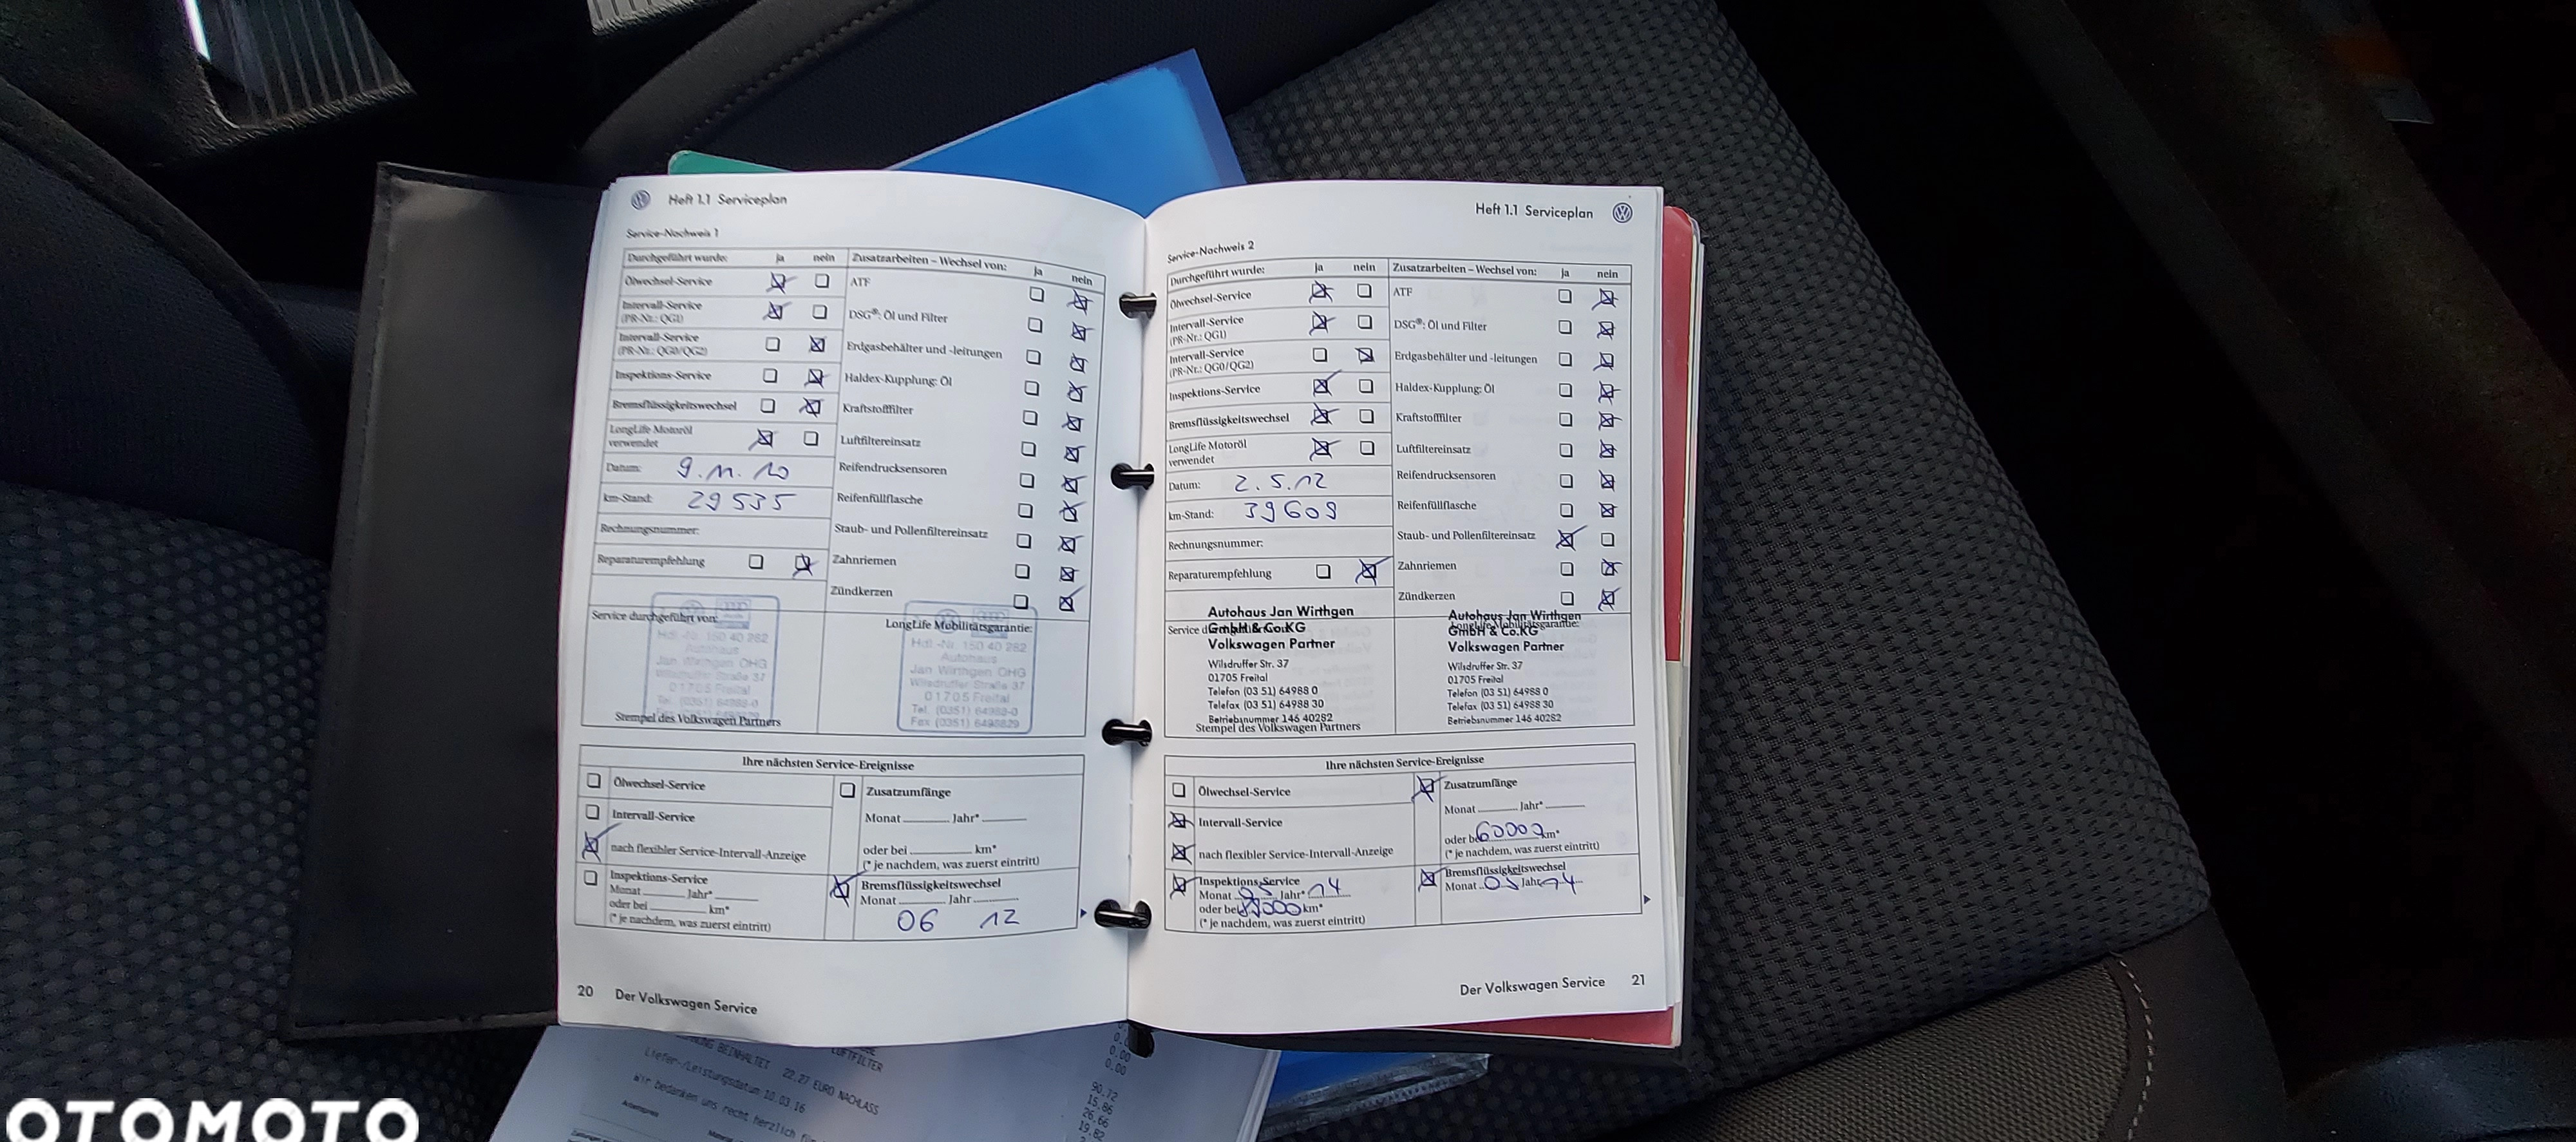 Heft 1.1 Serviceplan
Service-Nachweis 1
Durchgeführt wurde: ja nein
Ölwechsel-Service
Intervall-Service
(PR-Nr.: QG1)
Intervall-Service
(PR-Nr.: QG0/QG2)
Inspektions-Service
Bremsflüssigkeitswechsel
LongLife Motoröl
verwendet
Datum: 9.11.10
km-Stand: 29535
Rechnungsnummer:
Reparaturempfehlung
Zusatzarbeiten – Wechsel von: ja nein
ATF
DSG®: Öl und Filter
Erdgasbehälter und -leitungen
Haldex-Kupplung: Öl
Kraftstofffilter
Luftfiltereinsatz
Reifendrucksensoren
Reifenfüllflasche
Staub- und Pollenfiltereinsatz
Zahnriemen
Zündkerzen
Service durchgeführt von:
Hdl.-Nr. 150 40 282
Autohaus
Jan Wirthgen OHG
Wilsdruffer Straße 37
01705 Freital
Tel. (0351) 64988-0
Stempel des Volkswagen Partners
LongLife Mobilitätsgarantie:
Hdl.-Nr. 150 40 282
Autohaus
Jan Wirthgen OHG
Wilsdruffer Straße 37
01705 Freital
Tel. (0351) 64988-0
Fax (0351) 6498829
Ihre nächsten Service-Ereignisse
Ölwechsel-Service
Intervall-Service
nach flexibler Service-Intervall-Anzeige
Inspektions-Service
Monat Jahr*
oder bei km*
(* je nachdem, was zuerst eintritt)
Zusatzumfänge
Monat Jahr*
oder bei km*
(* je nachdem, was zuerst eintritt)
Bremsflüssigkeitswechsel
Monat Jahr
06 12
20 Der Volkswagen Service
Heft 1.1 Serviceplan
Service-Nachweis 2
Durchgeführt wurde: ja nein
Ölwechsel-Service
Intervall-Service
(PR-Nr.: QG1)
Intervall-Service
(PR-Nr.: QG0/QG2)
Inspektions-Service
Bremsflüssigkeitswechsel
LongLife Motoröl
verwendet
Datum: 2.5.12
km-Stand: 39609
Rechnungsnummer:
Reparaturempfehlung
Zusatzarbeiten – Wechsel von: ja nein
ATF
DSG®: Öl und Filter
Erdgasbehälter und -leitungen
Haldex-Kupplung: Öl
Kraftstofffilter
Luftfiltereinsatz
Reifendrucksensoren
Reifenfüllflasche
Staub- und Pollenfiltereinsatz
Zahnriemen
Zündkerzen
Autohaus Jan Wirthgen
GmbH & Co.KG
Volkswagen Partner
Wilsdruffer Str. 37
01705 Freital
Telefon (03 51) 64988 0
Telefax (03 51) 64988 30
Betriebsnummer 146 40282
Stempel des Volkswagen Partners
Autohaus Jan Wirthgen
GmbH & Co.KG
Volkswagen Partner
Wilsdruffer Str. 37
01705 Freital
Telefon (03 51) 64988 0
Telefax (03 51) 64988 30
Betriebsnummer 146 40282
Ihre nächsten Service-Ereignisse
Ölwechsel-Service
Intervall-Service
nach flexibler Service-Intervall-Anzeige
Inspektions-Service
Monat 05 Jahr* 14
km*
(* je nachdem, was zuerst eintritt)
Zusatzumfänge
Monat Jahr*
oder bei 60000 km*
(* je nachdem, was zuerst eintritt)
Bremsflüssigkeitswechsel
Monat 05 Jahr 14
Der Volkswagen Service 21
LUFTFILTER
BEINHALTET 22.27 EURO NACHLASS
Liefer-/Leistungsdatum 10.03.16
Wir bedanken uns recht herzlich
0.00
0.00
90.72
15.86
26.66
19.82
OTOMOTO